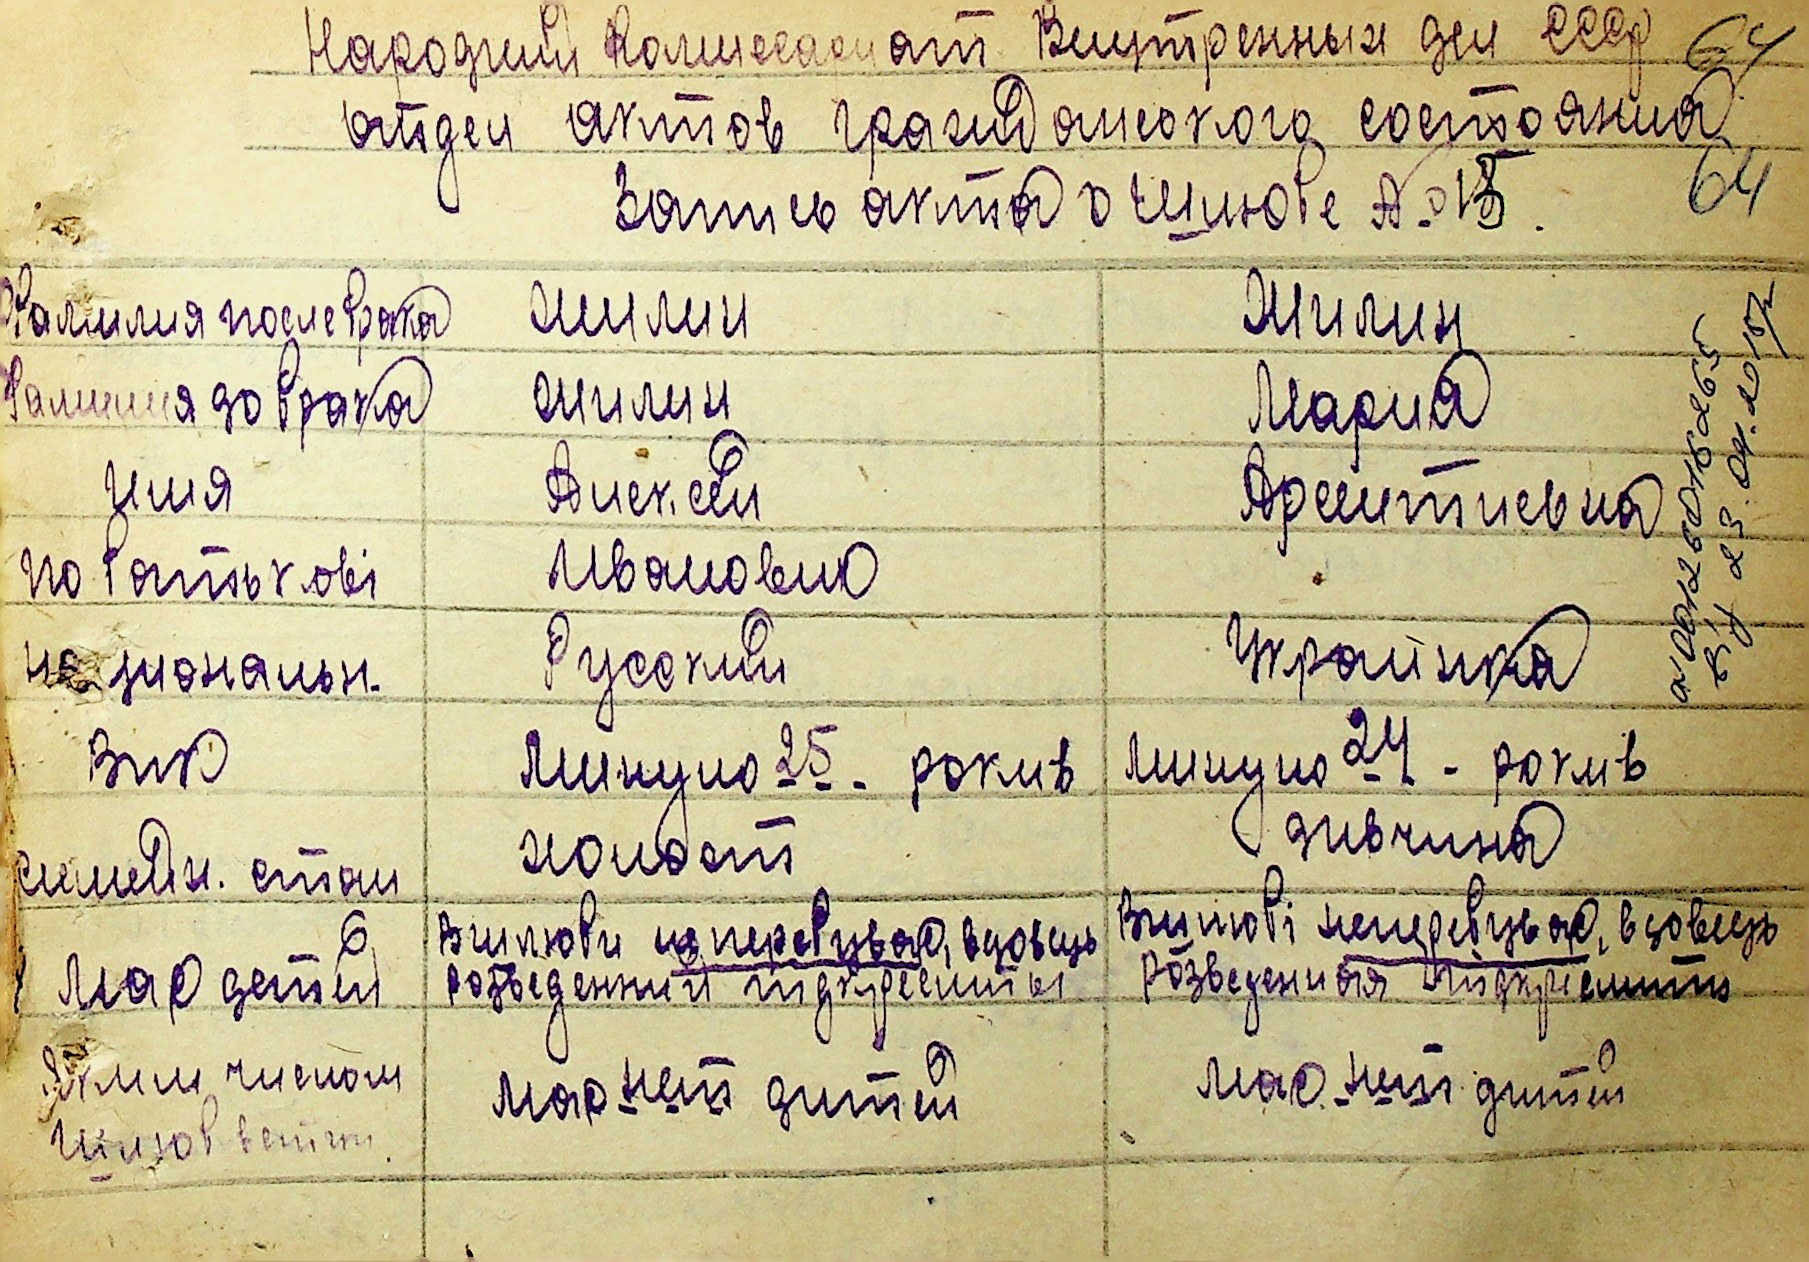 Народний Комиссариат Внутренных дел СССР 64
отдел актов гражданского состояния
64
Запись акта о шлюбе № 15.
Фамилия после брака Жилин Жилин
Фамилия до брака Жилин Мария
Имя Алексей Арентиевна
по батькові Иванович
национальн. Русский Українка
Вик Минуло 25 - рокив минуло 24 - рокив
семейн. стан холост дивчина
Має детей В шлюби не перебував, вдовець В шлюбі неперебував, вдовець
розведенний підкреслити розведенная підкреслити
Яким числом має нет дитей має нет дитей
шлюб взяти
від 23.04.2018р